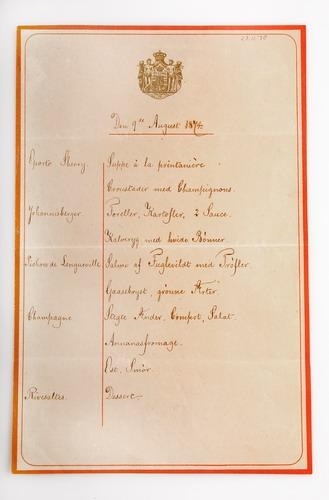 Den 9de August 1874.
Oporto Sherry. Suppe à la printanière.
Croustader med Champignons.
Johannesberger. Foreller, Kartofler, 2 Sauce.
Kalveryg med hvide Bønner.
Pichon de Longueville Salmi af Fuglevildt med Trøfler.
Gaasebryst, grønne Ærter
Champagne Stegte Ænder, Compot, Salat.
Ananasfromage.
Ost, Smör.
Rivesaltes. Dessert.